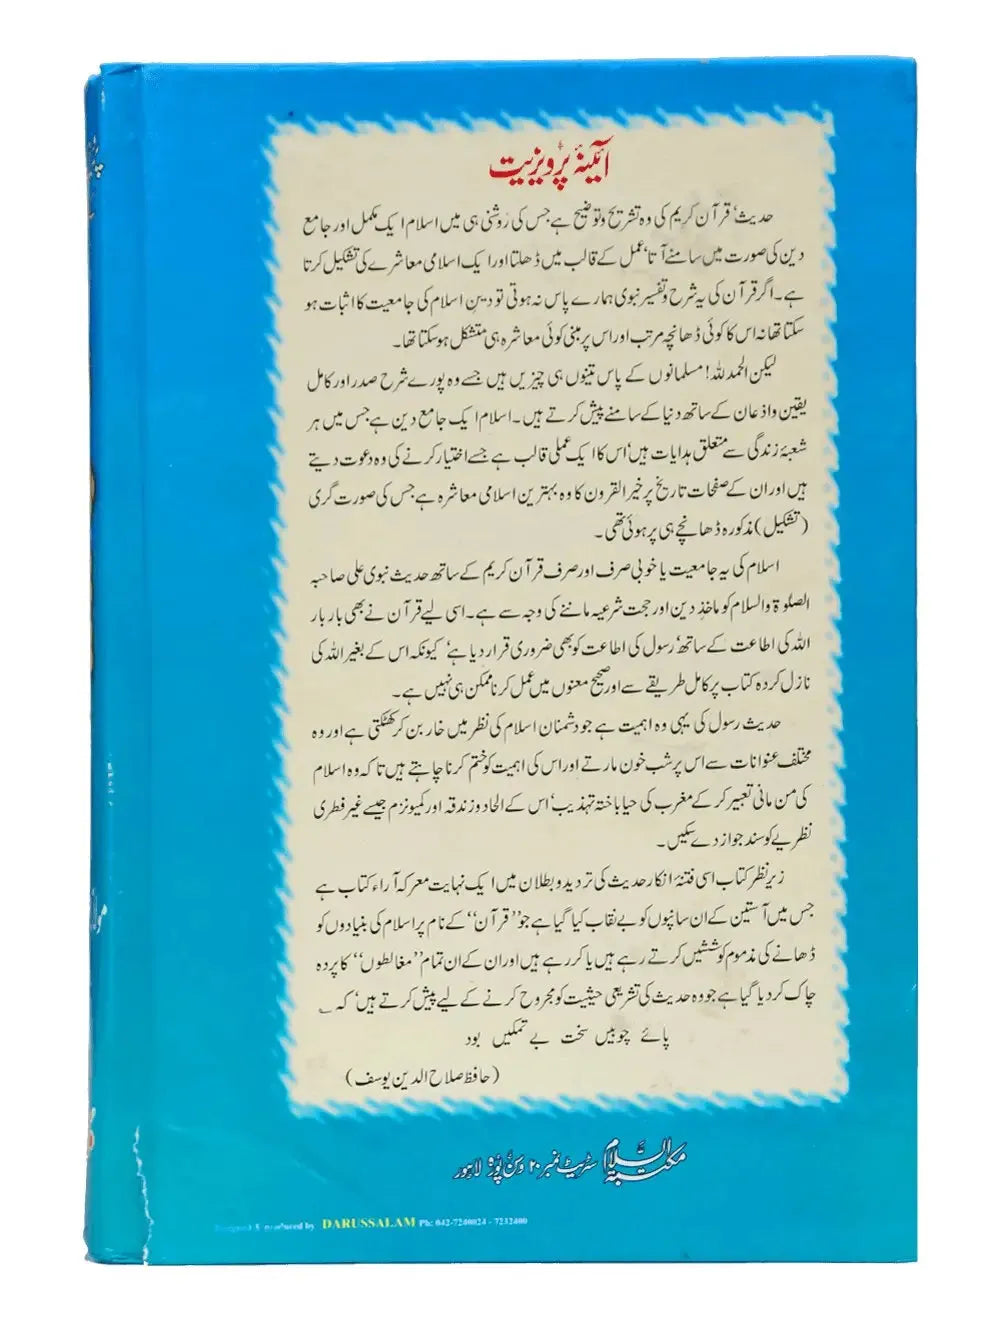 آئینۂ پرویزیت
حدیث، قرآن کریم کی وہ تشریح و توضیح ہے جس کی روشنی ہی میں اسلام ایک مکمل اور جامع
دین کی صورت میں سامنے آتا، عمل کے قالب میں ڈھلتا اور ایک اسلامی معاشرے کی تشکیل کرتا
ہے۔ اگر قرآن کی یہ شرح و تفسیر نبوی ہمارے پاس نہ ہوتی تو دین اسلام کی جامعیت کا اثبات ہو
سکتا تھا نہ اس کا کوئی ڈھانچہ مرتب اور اس پر مبنی کوئی معاشرہ ہی متشکل ہو سکتا تھا۔
لیکن الحمد للہ! مسلمانوں کے پاس تینوں ہی چیزیں ہیں جسے وہ پورے شرح صدر اور کامل
یقین و اذعان کے ساتھ دنیا کے سامنے پیش کرتے ہیں۔ اسلام ایک جامع دین ہے جس میں ہر
شعبۂ زندگی سے متعلق ہدایات ہیں، اس کا ایک عملی قالب ہے جسے اختیار کرنے کی وہ دعوت دیتے
ہیں اور ان کے صفحات تاریخ پر خیر القرون کا وہ بہترین اسلامی معاشرہ ہے جس کی صورت گری
(تشکیل) مذکورہ ڈھانچے ہی پر ہوئی تھی۔
اسلام کی یہ جامعیت یا خوبی صرف اور صرف قرآن کریم کے ساتھ حدیث نبوی علی صاحبہ
الصلوٰۃ والسلام کو ماخذ دین اور حجت شرعیہ ماننے کی وجہ سے ہے۔ اسی لیے قرآن نے بھی بار بار
اللہ کی اطاعت کے ساتھ، رسول کی اطاعت کو بھی ضروری قرار دیا ہے، کیونکہ اس کے بغیر اللہ کی
نازل کردہ کتاب پر کامل طریقے سے اور صحیح معنوں میں عمل کرنا ممکن ہی نہیں ہے۔
حدیث رسول کی یہی وہ اہمیت ہے جو دشمنان اسلام کی نظر میں خار بن کر کھٹکتی ہے اور وہ
مختلف عنوانات سے اس پر شب خون مارتے اور اس کی اہمیت کو ختم کرنا چاہتے ہیں تا کہ وہ اسلام
کی من مانی تعبیر کر کے مغرب کی حیا باختہ تہذیب، اس کے الحاد و زندقہ اور کمیونزم جیسے غیر فطری
نظریے کو سند جواز دے سکیں۔
زیر نظر کتاب اسی فتنۂ انکار حدیث کی تردید و بطلان میں ایک نہایت معرکہ آراء کتاب ہے
جس میں آستین کے ان سانپوں کو بے نقاب کیا گیا ہے جو ”قرآن“ کے نام پر اسلام کی بنیادوں کو
ڈھانے کی مذموم کوششیں کرتے رہے ہیں یا کر رہے ہیں اور ان کے ان تمام ”مغالطوں“ کا پردہ
چاک کر دیا گیا ہے جو وہ حدیث کی تشریعی حیثیت کو مجروح کرنے کے لیے پیش کرتے ہیں، کہ ؎
پائے چوبیں سخت بے تمکیں بود
(حافظ صلاح الدین یوسف)
مکتبۃ السلام سٹریٹ نمبر ۲۰ وسن پورہ لاہور
DARUSSALAM Ph: 042-7240024 - 7232400